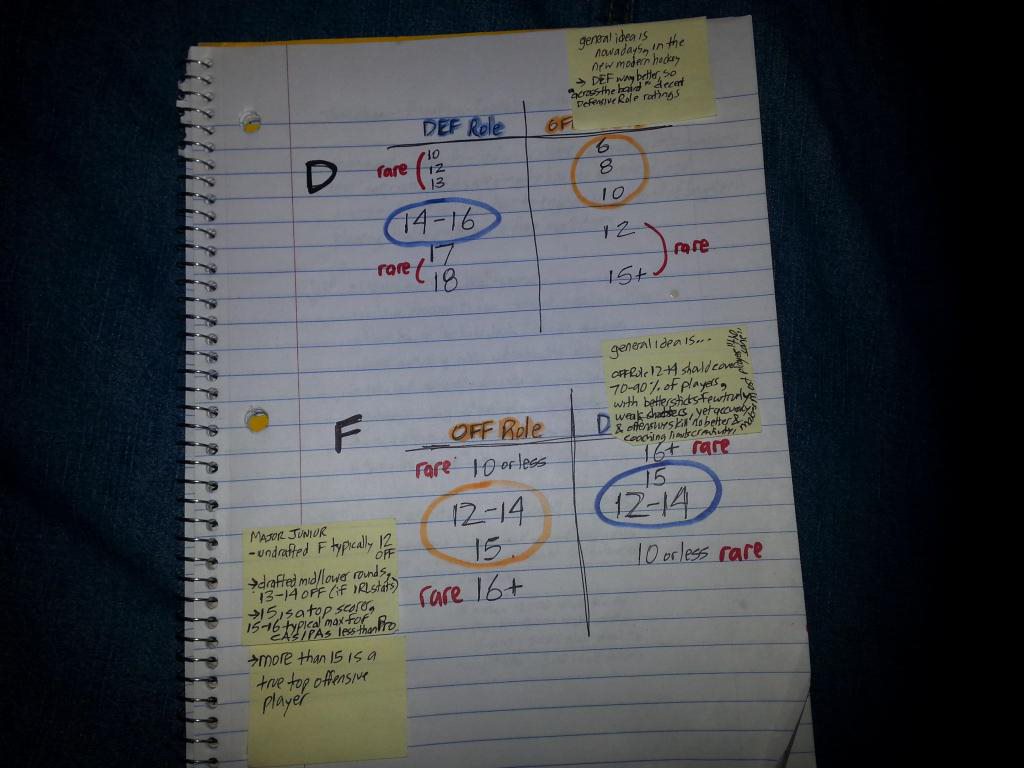 general idea is
nowadays, in the
new modern hockey
→ DEF way better, so
"across the board" decent
Defensive Role ratings
DEF Role
OF
D
rare ( 10
12
13
14-16
rare ( 17
18
6
8
10
12
15+
) rare
general idea is...
OFF Role 12-14 should cover
70-90% of players,
with better sticks few truly
weak shooters, yet accuracy
& offensive skill no better &
coaching limits creativity,
most players
F
OFF Role
D
rare 10 or less
12-14
15
rare 16+
16+ rare
15
12-14
10 or less rare
MAJOR JUNIOR
- undrafted F typically 12
OFF
→ drafted mid/lower rounds,
13-14 OFF (if IRL stats)
→ 15, is a top scorer,
15-16 typical max for
CAs/PAs less than Pro
→ more than 15 is a
true top offensive
player